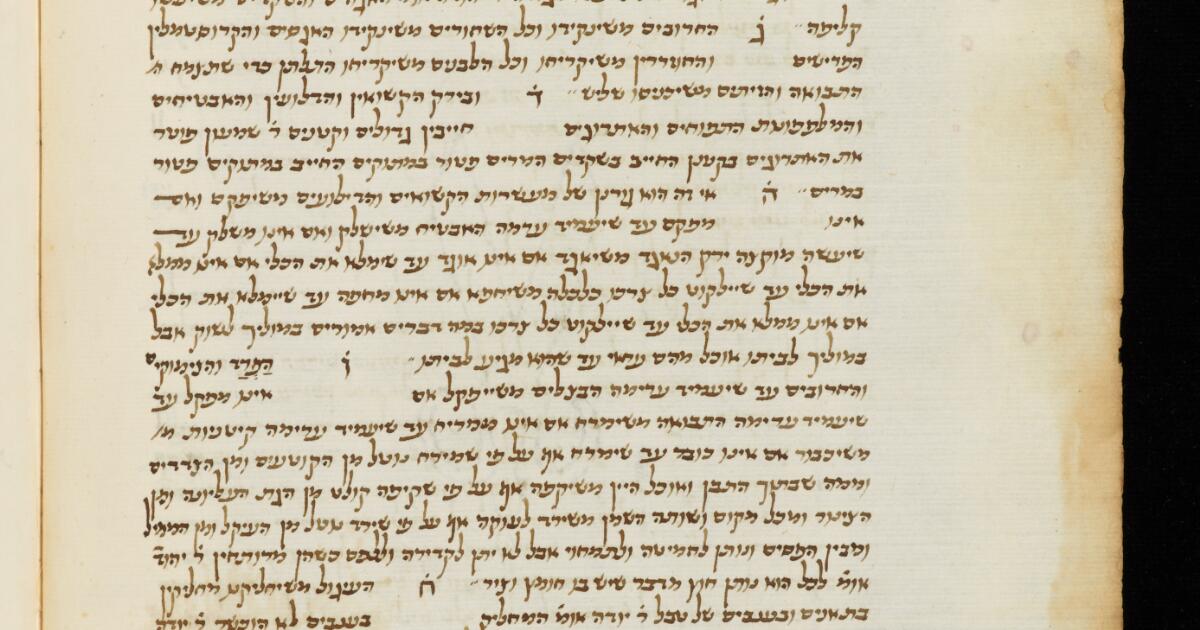 קליפה ג החרובים משינקידו וכל השחורים משינקידו האגסים והקרוסטמלין
הפרישים והחוזרדין משיקריחו וכל הלבנים משיקריחו הרבלתן כדי שתצמח ה
התבואה והזיתים משיכניסו שליש ד ובירק הקשואין והדלועין והאבטיחים
והמלפפונות התפוחים והאתרוגים חייבין גדולים וקטנים ר שמעון פוטר
את האתרוגים בקטנן החייב בשקדים המרים פטור במתוקים החייב במתוקים פטור
במרים ה אי זה הוא גורנן של מעשרות הקשואים והדילועים משיפקס ואם
אינו מפקס עד שיעמיד ערמה האבטיח משישלק ואם אינו משלק עד
שיעשה מוקצה ירק הנאגד משיאגד אם אינו אוגד עד שימלא את הכלי אם אינו ממלא
את הכלי עד שיילקוט כל צרכו כלכלה משיחפא אם אינו מחפה עד שיימלא את הכלי
אם אינו ממלא את הכלי עד שיילקוט כל צרכו במה דברים אמורים במוליך לשוק אבל
במוליך לביתו אוכל מהם עראי עד שהוא מגיע לביתו ו הפרד והצימוקים
והחרובים עד שיעמיד ערימה הבצלים משייפקל אם אינו מפקל עד
שיעמיד ערימה התבואה משימרח אם אינו ממריח עד שיעמיד ערימה קיטניות
משיכבור אם אינו כובר עד שימרח אף על פי שמירח נוטל מן הקוטעים ומן הצדדים
וממה שבתוך התבן ואוכל היין משיקפה אף על פי שקיפה קולט מן הגת העליונה ומן
הצינור ומכל מקום ושותה השמן משירד לעוקה אף על פי שירד נוטל מן העיקל ומן הממל
ומבין הפסים ונותן לחמיטה ולתמחוי אבל לא יתן לקדירה וללפס כשהן מרותחין ר יהודה
אומ לכל הוא נותן חוץ מדבר שיש בו חומץ וציר ח העיגול משיחליקנו מחליקין
בתאנים ובענבים של טבל ר יודה אומ המחליק בענבים לא הוכשר ר יודה